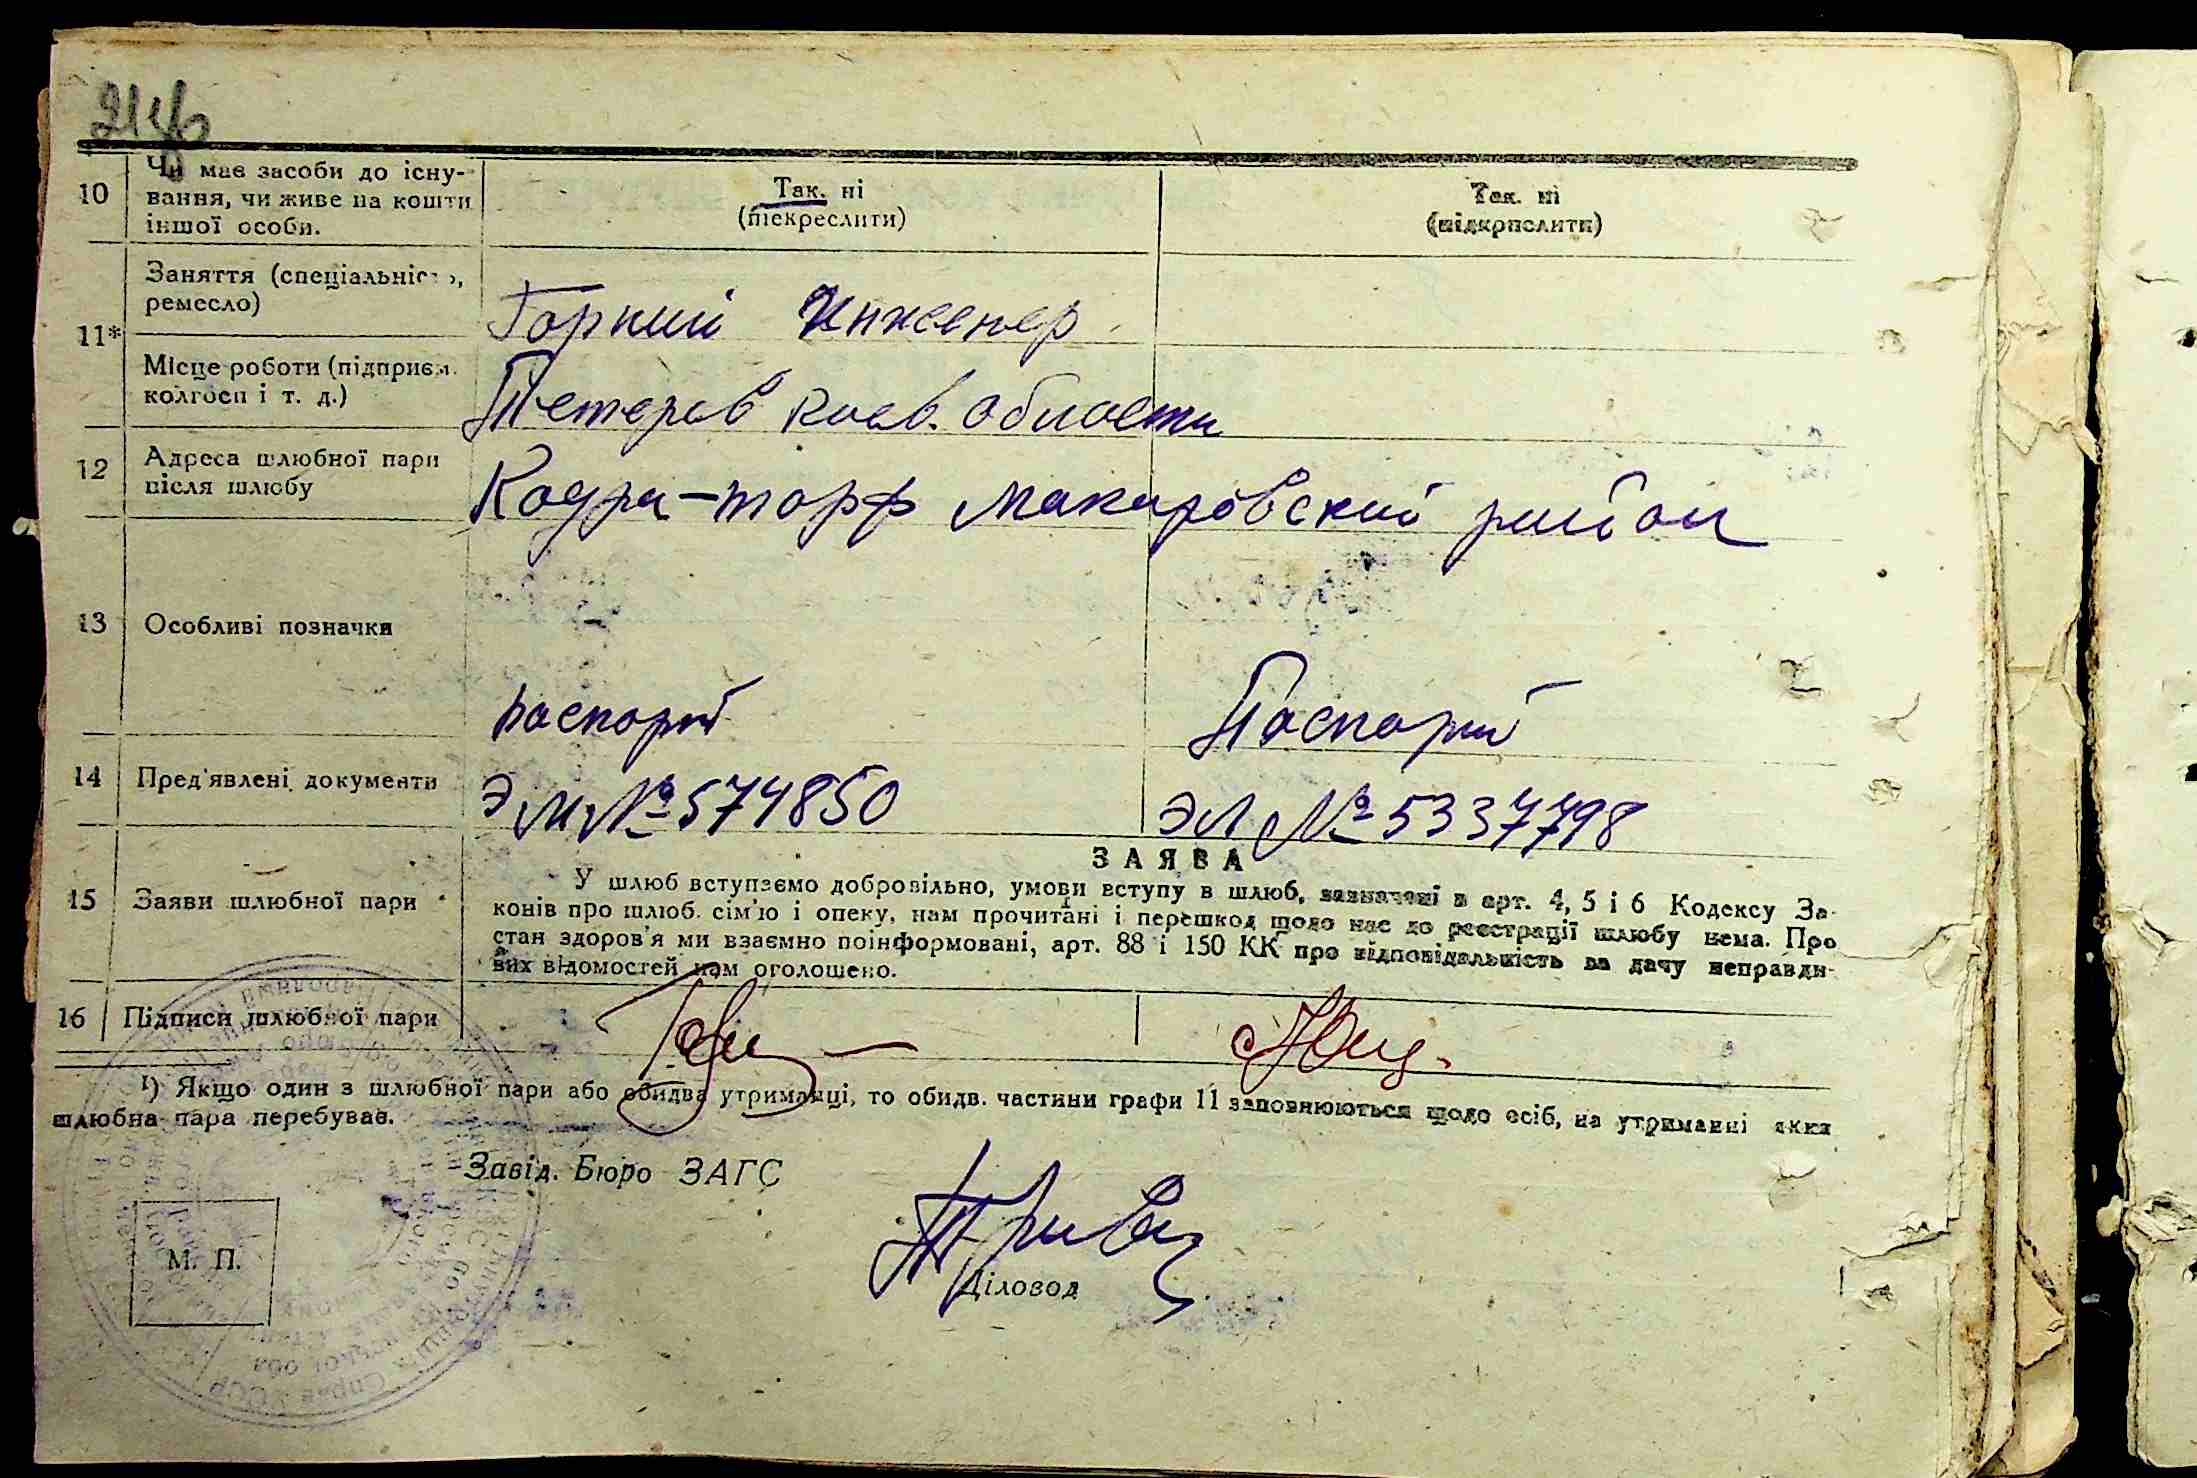 10 Чи має засоби до існу-
вання, чи живе на кошти
іншої особи.
Так. ні
(підкреслити)
Так. ні
(підкреслити)
11*
Заняття (спеціальність,
ремесло)
Горний Инженер
Місце роботи (підприєм.
колгосп і т. д.)
Тетерев киев. области
12 Адреса шлюбної пари
після шлюбу
Кодра-торф Макаровский район
13 Особливі позначки
паспорт
Паспорт
14 Пред'явлені документи
ЭМ № 574850
ЭЛ № 5337798
15 Заяви шлюбної пари
ЗАЯВА
У шлюб вступаємо добровільно, умови вступу в шлюб, зазначені в арт. 4, 5 і 6 Кодексу За-
конів про шлюб. сім'ю і опеку, нам прочитані і перешкод щодо нас до реєстрації шлюбу нема. Про
стан здоров'я ми взаємно поінформовані, арт. 88 і 150 КК про відповідальність за дачу неправди-
вих відомостей нам оголошено.
16 Підписи шлюбної пари
¹) Якщо один з шлюбної пари або обидва утриманці, то обидв. частини графи 11 заповнюються щодо осіб, на утриманні яких
шлюбна пара перебуває.
Завід. Бюро ЗАГС
М. П.
Діловод